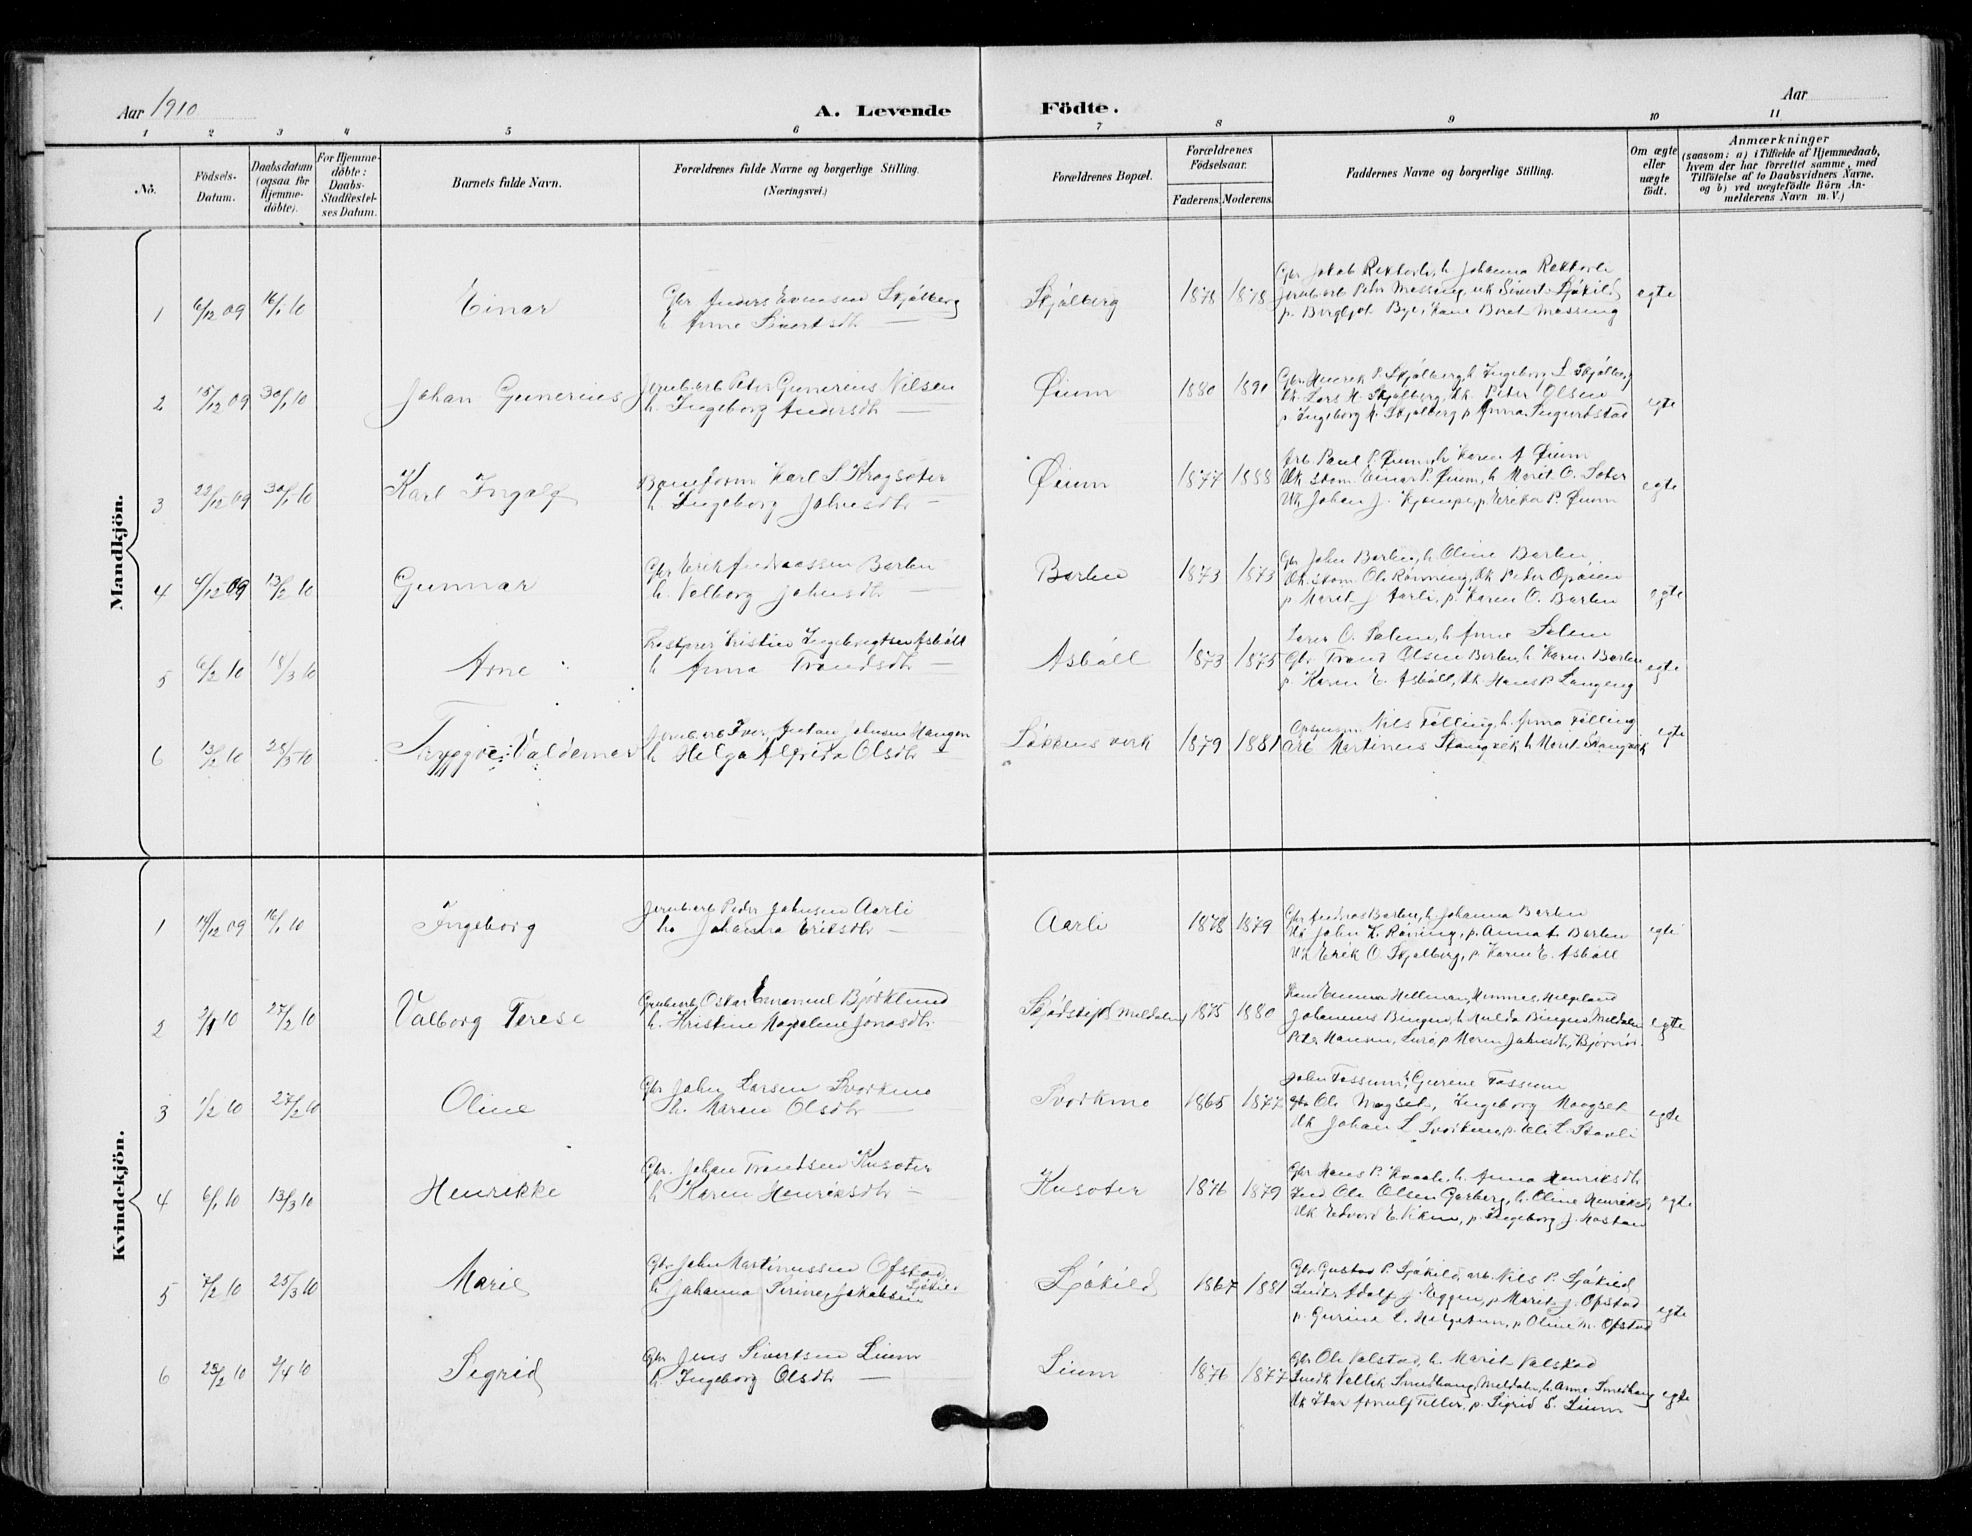 Aar 1910
A. Levende Födte.
Aar
1 2 3 4 5 6 7 8 9 10 11
No.
Födsels-Datum.
Daabsdatum (ogsaa for Hjemme-döbte).
For Hjemme-döbte: Daabs-Stadfæstel-ses Datum.
Barnets fulde Navn.
Forældrenes fulde Navne og borgerlige Stilling. (Næringsvei.)
Forældrenes Bopæl.
Forældrenes Födselsaar.
Faderens. Moderens.
Faddernes Navne og borgerlige Stilling.
Om ægte eller uægte födt.
Anmærkninger
(saasom: a) i Tilfælde af Hjemmedaab, hvem der har forrettet samme, med Tilföielse af to Daabsvidners Navne, og b) ved uægtefödte Börn An-melderens Navn m. V.)
Mandkjön.
1 6/12 09 16/1 10 Einar
Gbr Anders Evensen Skjølberg
h. Anne Sivertsdtr —
Skjølberg 1878 1878
Gbr Jakob Rekkerli, h. Johanna Rekkerli
Jernb.arb Peter Massing, uk Sivert Ljøkild
p. Bergljot Bye, kone Beret Massing
egte
2 15/12 09 30/1 10 Johan Gunerius
Jernb.arb Peter Gunerius Nilsen
h. Ingeborg Andersdtr —
Øium 1880 1890
Gbr. Henrik P. Skjølberg, h. Ingeborg L. Skjølberg
Uk. Lars H. Skjølberg, Uk. Peter Olsen
p. Ingeborg H. Skjølberg p Anna Singurdstad
egte
3 22/12 09 30/1 10 Karl Ingolf
Baneform Karl S. Krogsæter
h. Ingeborg Johnsdtr —
Øium 1877 1888
Arb. Paul P. Øium, h Karen A Øium
Uk stom. Einar P. Øium, h Marit O. Sæter
Uk Johan J. Kjempe, p. Ereka P. Øium
egte
4 4/12 09 13/2 10 Gunnar
Gbr Erik Andreassen Barlien
h. Valborg Johnsdtr —
Barlie 1873 1873
Gbr John Barlie, h Oline Barlien
Uk. stom Ole Rønning, Uk Peder Opøien
p Marit J Aarli, p. Karen O. Barlien
egte
5 6/2 10 18/3 10 Arne
Kristian Ingebrigtsen Asbøll
h Anna Trondsdtr —
Asbøll 1873 1875
Lærer O. Solem, h Anna Solem
Gbr Trond Olsen Barlien, h Karen Barlien
p. Karen E. Asbøll, Uk Hans P. Langeng
egte
6 13/2 10 25/3 10 Trygve Valdemar
Jernb.arb Iver Johan Johnsen Haugen
h Helga Alfrida Olsdtr —
Løkkens verk 1879 1881
Opsynsm. Nils Følling, h. Anna Følling
Arb Martinus Stangvik h Marit Stangvik
egte
Kvindekjön.
1 14/12 09 16/1 10 Ingeborg
Jernb.arb Peder Johnsen Aarli
h. Johanna Eriksdtr —
Aarli 1878 1879
Gbr Andreas Barlien, h. Johanna Barlien
Uk John K. Røning, p. Anna A. Barlien
Uk Erik O. Skjølberg, p. Karen E. Asbøll
egte
2 2/1 10 27/2 10 Valborg Terese
Grubearb. Oskar Emanuel Bjørklund
h. Kristine Magdalene Jonasdtr.
Skjødskift Meldalen 1875 1880
Kone Emma Hellman, Hemnes, Helgeland
Johannes Bingen, h. Hulda Bingen, Meldalen
Peter Hansen, Lura, p Maren Johnsdtr, Bjørnør.
egte
3 1/2 10 27/2 10 Oline
Gbr John Larsen Svorkmo
h. Maren Olsdtr —
Svorkmo 1865 1872
John Fossum, h. Gurine Fossum
gbr Ole Mogset, Ingeborg Mogset
Uk Johan L. Svorkmo, p. Eli L. Stavli
egte
4 6/1 10 13/3 10 Henrikke
Gbr. Johan Trondsen Kusæter
h Karen Henriksdtr —
Kusæter 1876 1879
Gbr Hans P. Kvaale, h. Anna Henriksdtr
Ind. Ole Olsen Garberg, h. Oline Henriksd.
Uk Edvard E. Viken, p. Ingeborg J. Mostan
egte
5 7/2 10 25/3 10 Marie
Gbr John Martinussen Ofstad
h. Johanna Serine Jakobsen Ljøkild
Ljøkild 1867 1881
Gbr. Gustav P. Ljøkild, arb. Nils P. Ljøkild
Adolf J. Eggen, p Marit J. Ofstad
p. Gurina L. Helgetun, p Oline M. Ofstad
egte
6 23/2 10 2/4 10 Sigrid
Gbr Jens Sivertsen Lium
h. Ingeborg Olsdtr —
Lium 1876 1877
Gbr Ole Valstad, h. Marit Valstad
Smedhaug, Meldalen, h. Anne Smedhaug
Uk Arnulf Tiller, p. Sigrid S. Lium
egte